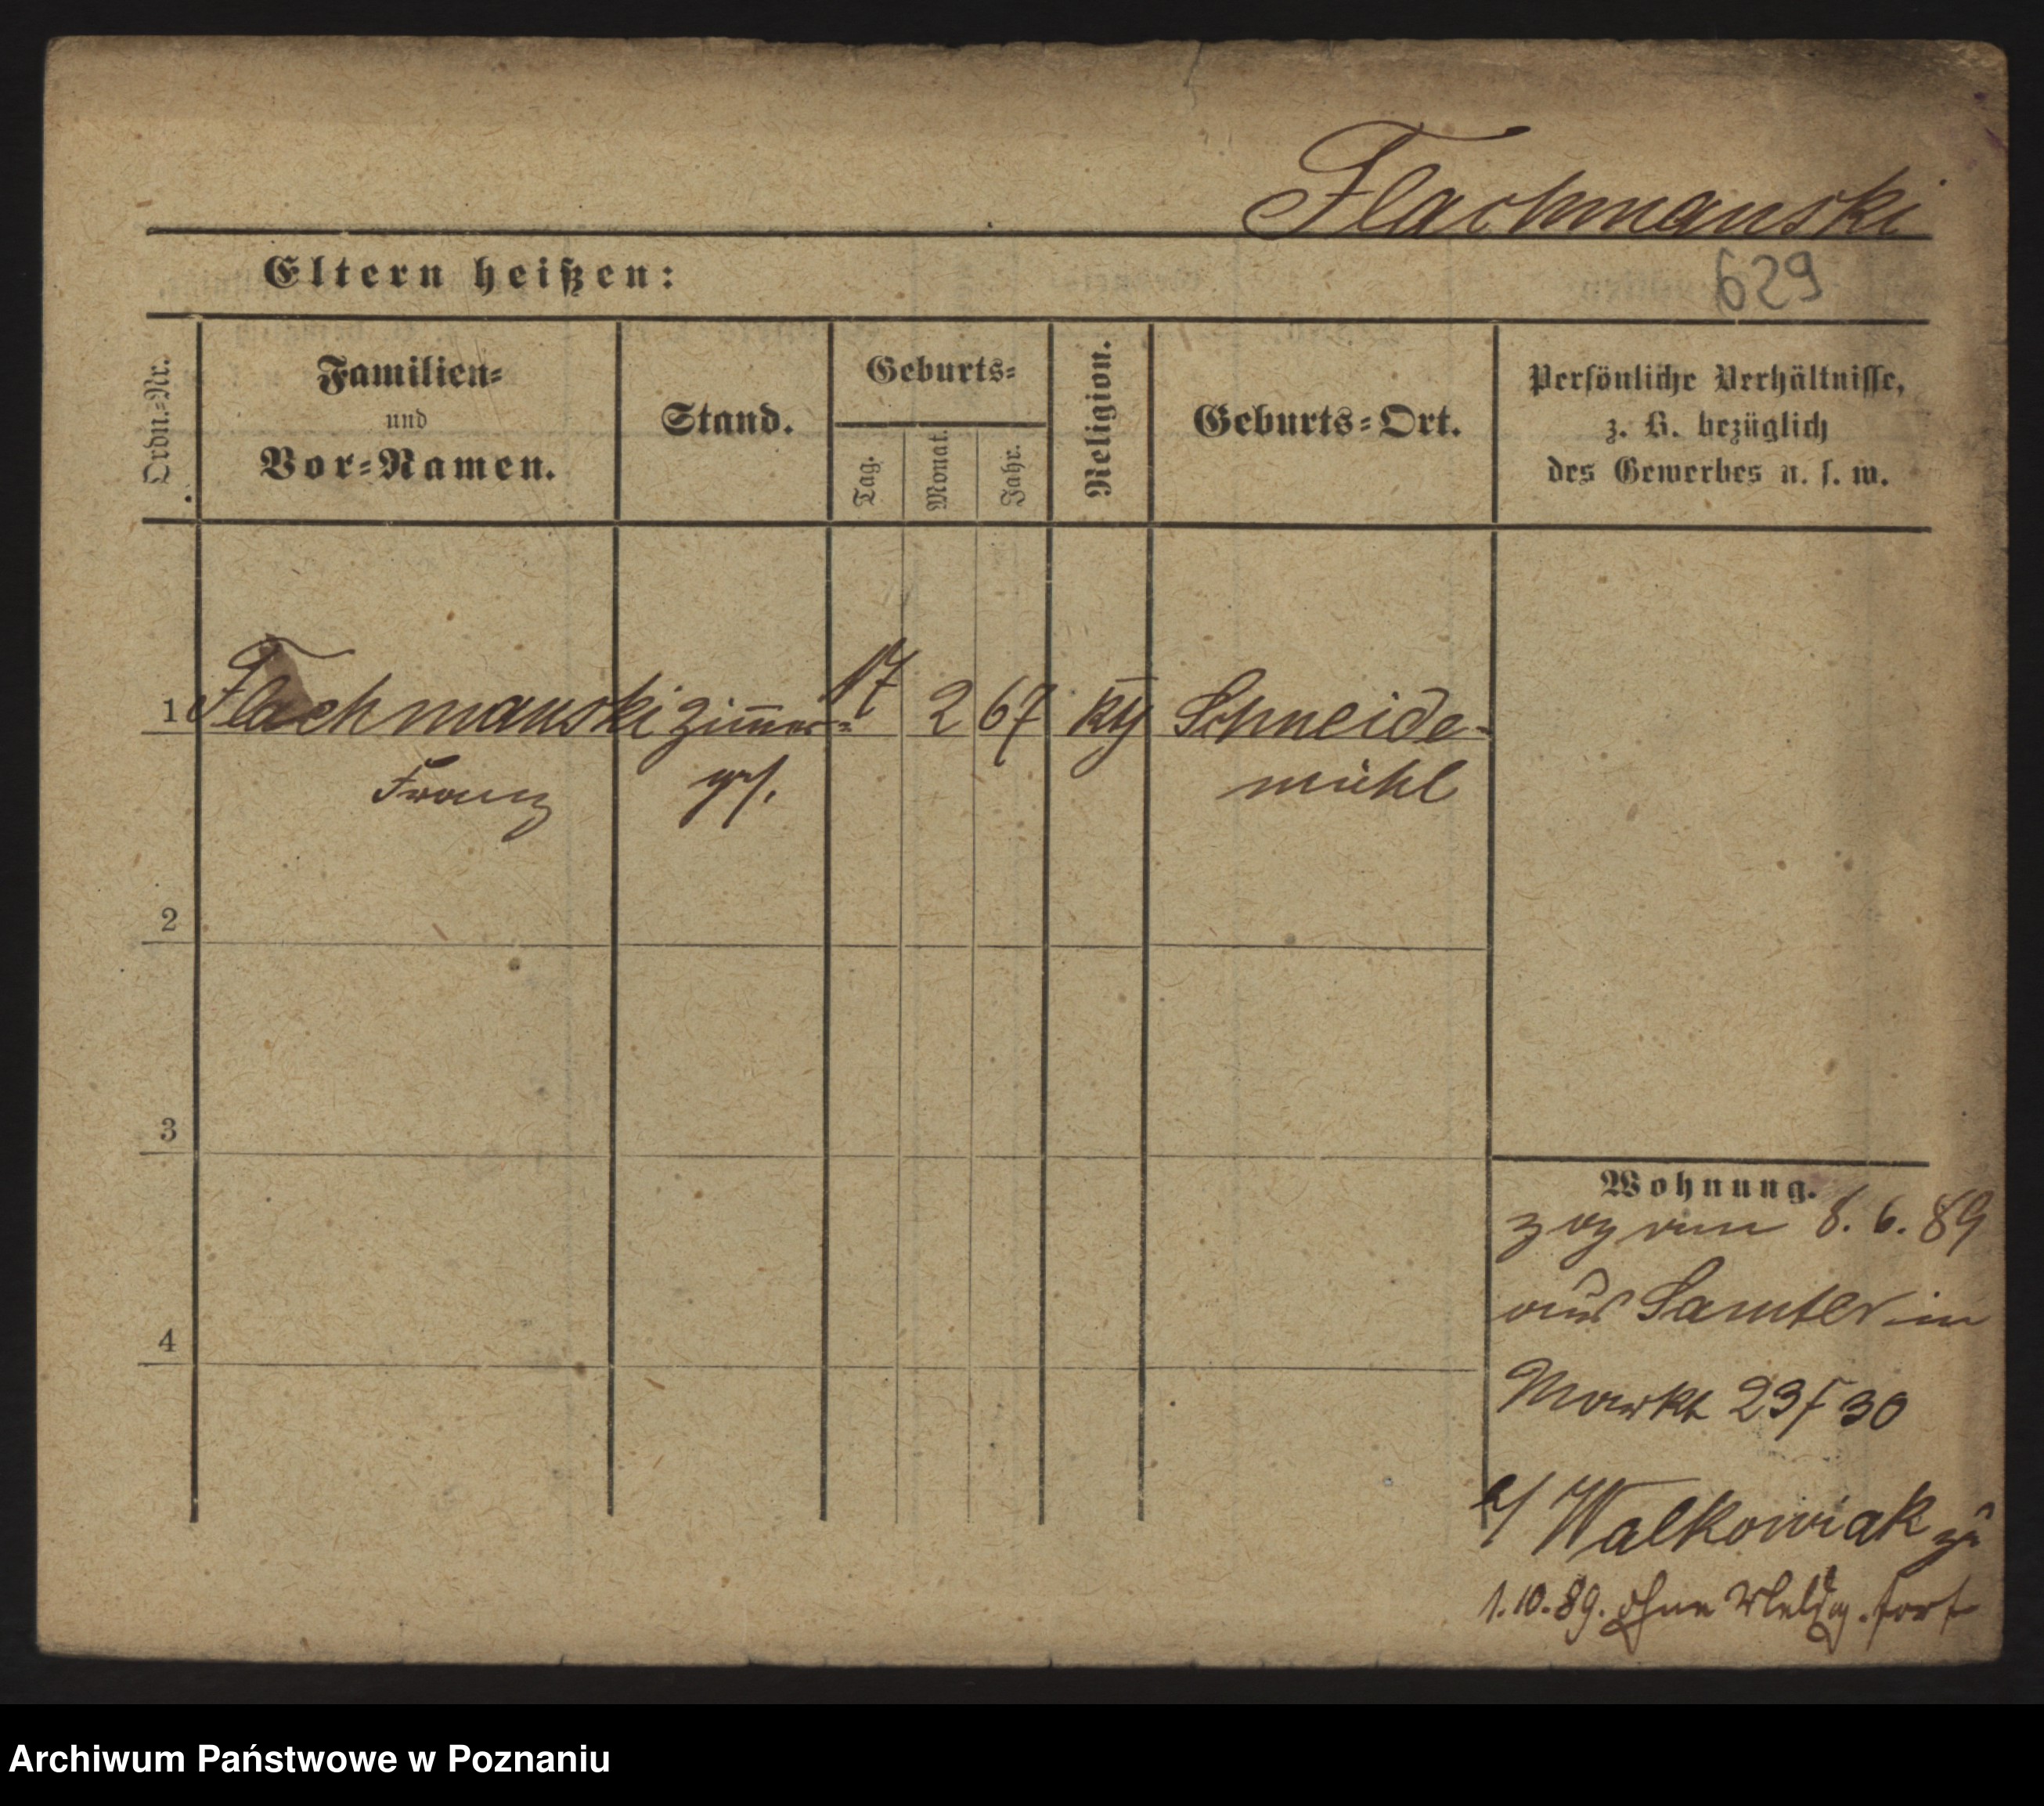 Flachmanski
Eltern heißen:
629
Ordn.-Nr.
Familien-
und
Vor-Namen.
Stand.
Geburts-
Tag.
Monat.
Jahr.
Religion.
Geburts-Ort.
Persönliche Verhältnisse,
z. B. bezüglich
des Gewerbes u. s. w.
1 Flachmanski Zimmer- 17 2 67 kth Schneide-
Franz gs. mühl
2
3
4
Wohnung.
zog am 8. 6. 89
aus Samter in
Markt 23/30
b/ Walkowiak zu
1.10.89. ohne Meldg. fort
Archiwum Państwowe w Poznaniu